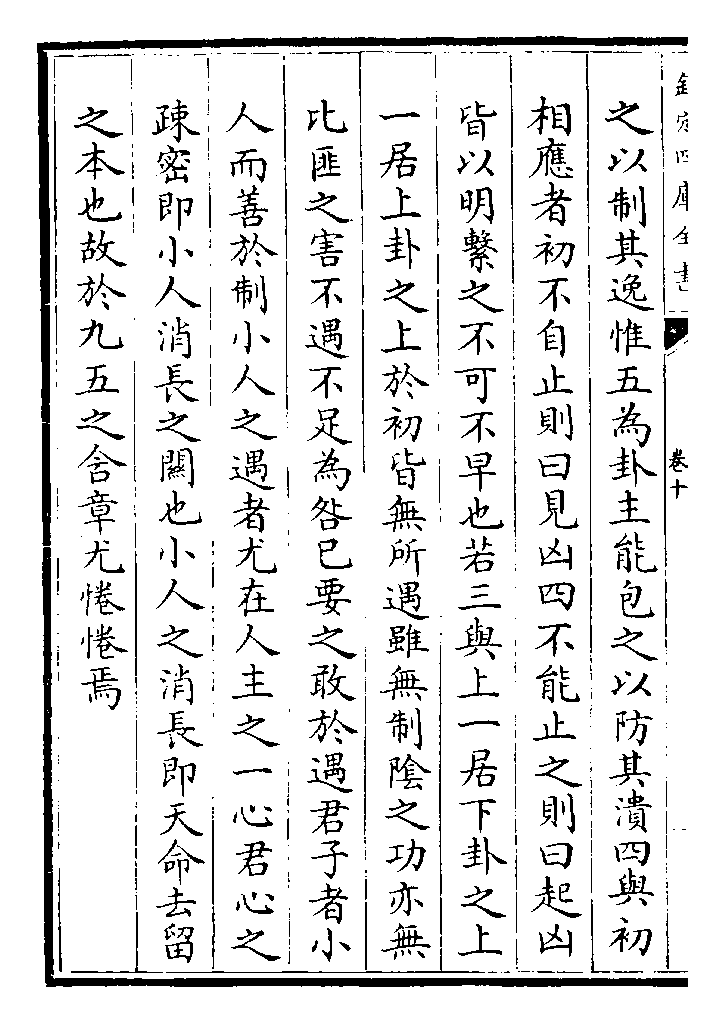 欽定四庫全書
卷十
之以制其逸惟五為卦主能包之以防其潰四與初
相應者初不自止則曰見凶四不能止之則曰起凶
皆以明繫之不可不早也若三與上一居下卦之上
一居上卦之上於初皆無所遇雖無制陰之功亦無
比匪之害不遇不足為咎已要之敢於遇君子者小
人而善於制小人之遇者尤在人主之一心君心之
疎密即小人消長之關也小人之消長即天命去留
之本也故於九五之含章尤惓惓焉